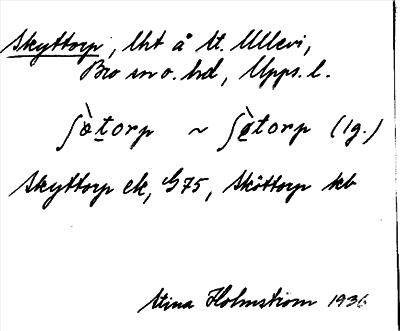 Skyttorp, lht å U. Ullevi,
Bro sn o. hd, Upps. l.
ʃœ̀torp ~ ʃè̤torp (lg.)
Skyttorp ek, G75, Sköttorp kb
Stina Holmström 1936